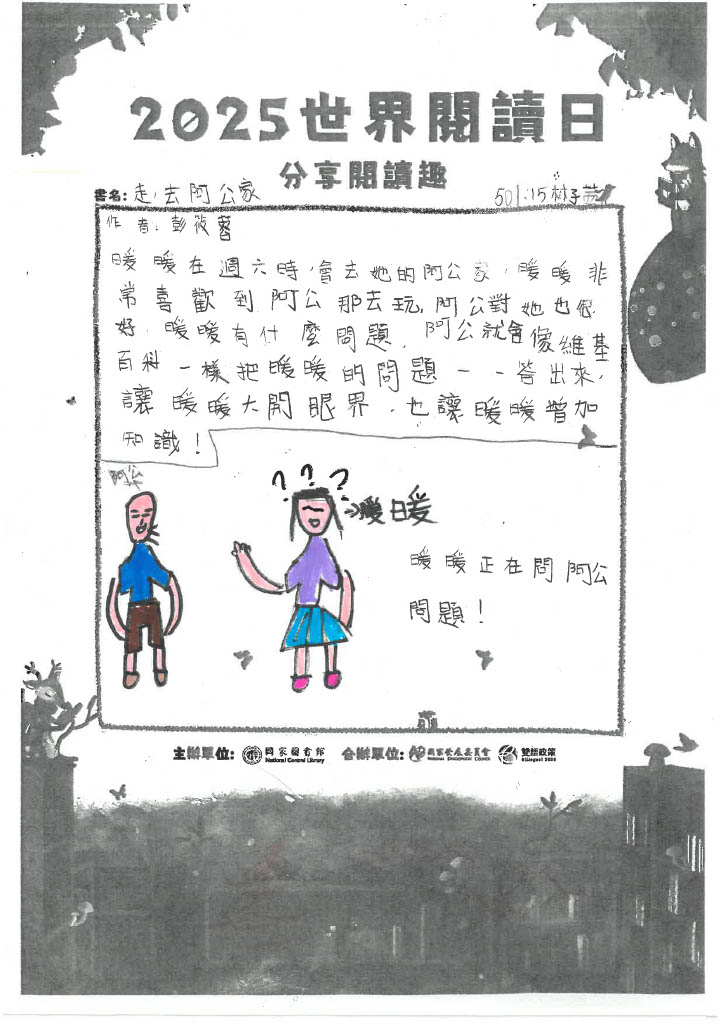 2025世界閱讀日
分享閱讀趣
書名：走，去阿公家
501:15林子
作者：彭筱蓉
暖暖在週六時，會去她的阿公家，暖暖非
常喜歡到阿公那去玩，阿公對她也很
好，暖暖有什麼問題，阿公就會像維基
百科一樣把暖暖的問題一一答出來，
讓暖暖大開眼界，也讓暖暖增加
知識！
阿公
? ? ?
暖暖
暖暖正在問阿公
問題！
主辦單位： 國家圖書館 合辦單位： 國家發展委員會 雙語政策
National Central Library NATIONAL DEVELOPMENT COUNCIL Bilingual 2030